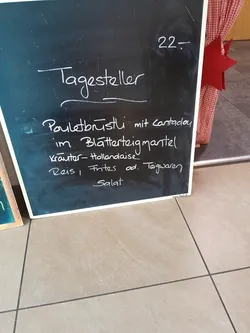 22.-
Tagesteller
Pouletbrüstli mit Cantadou
im Blätterteigmantel
Kräuter-Hollandaise
Reis, Frites od. Teigwaren
Salat